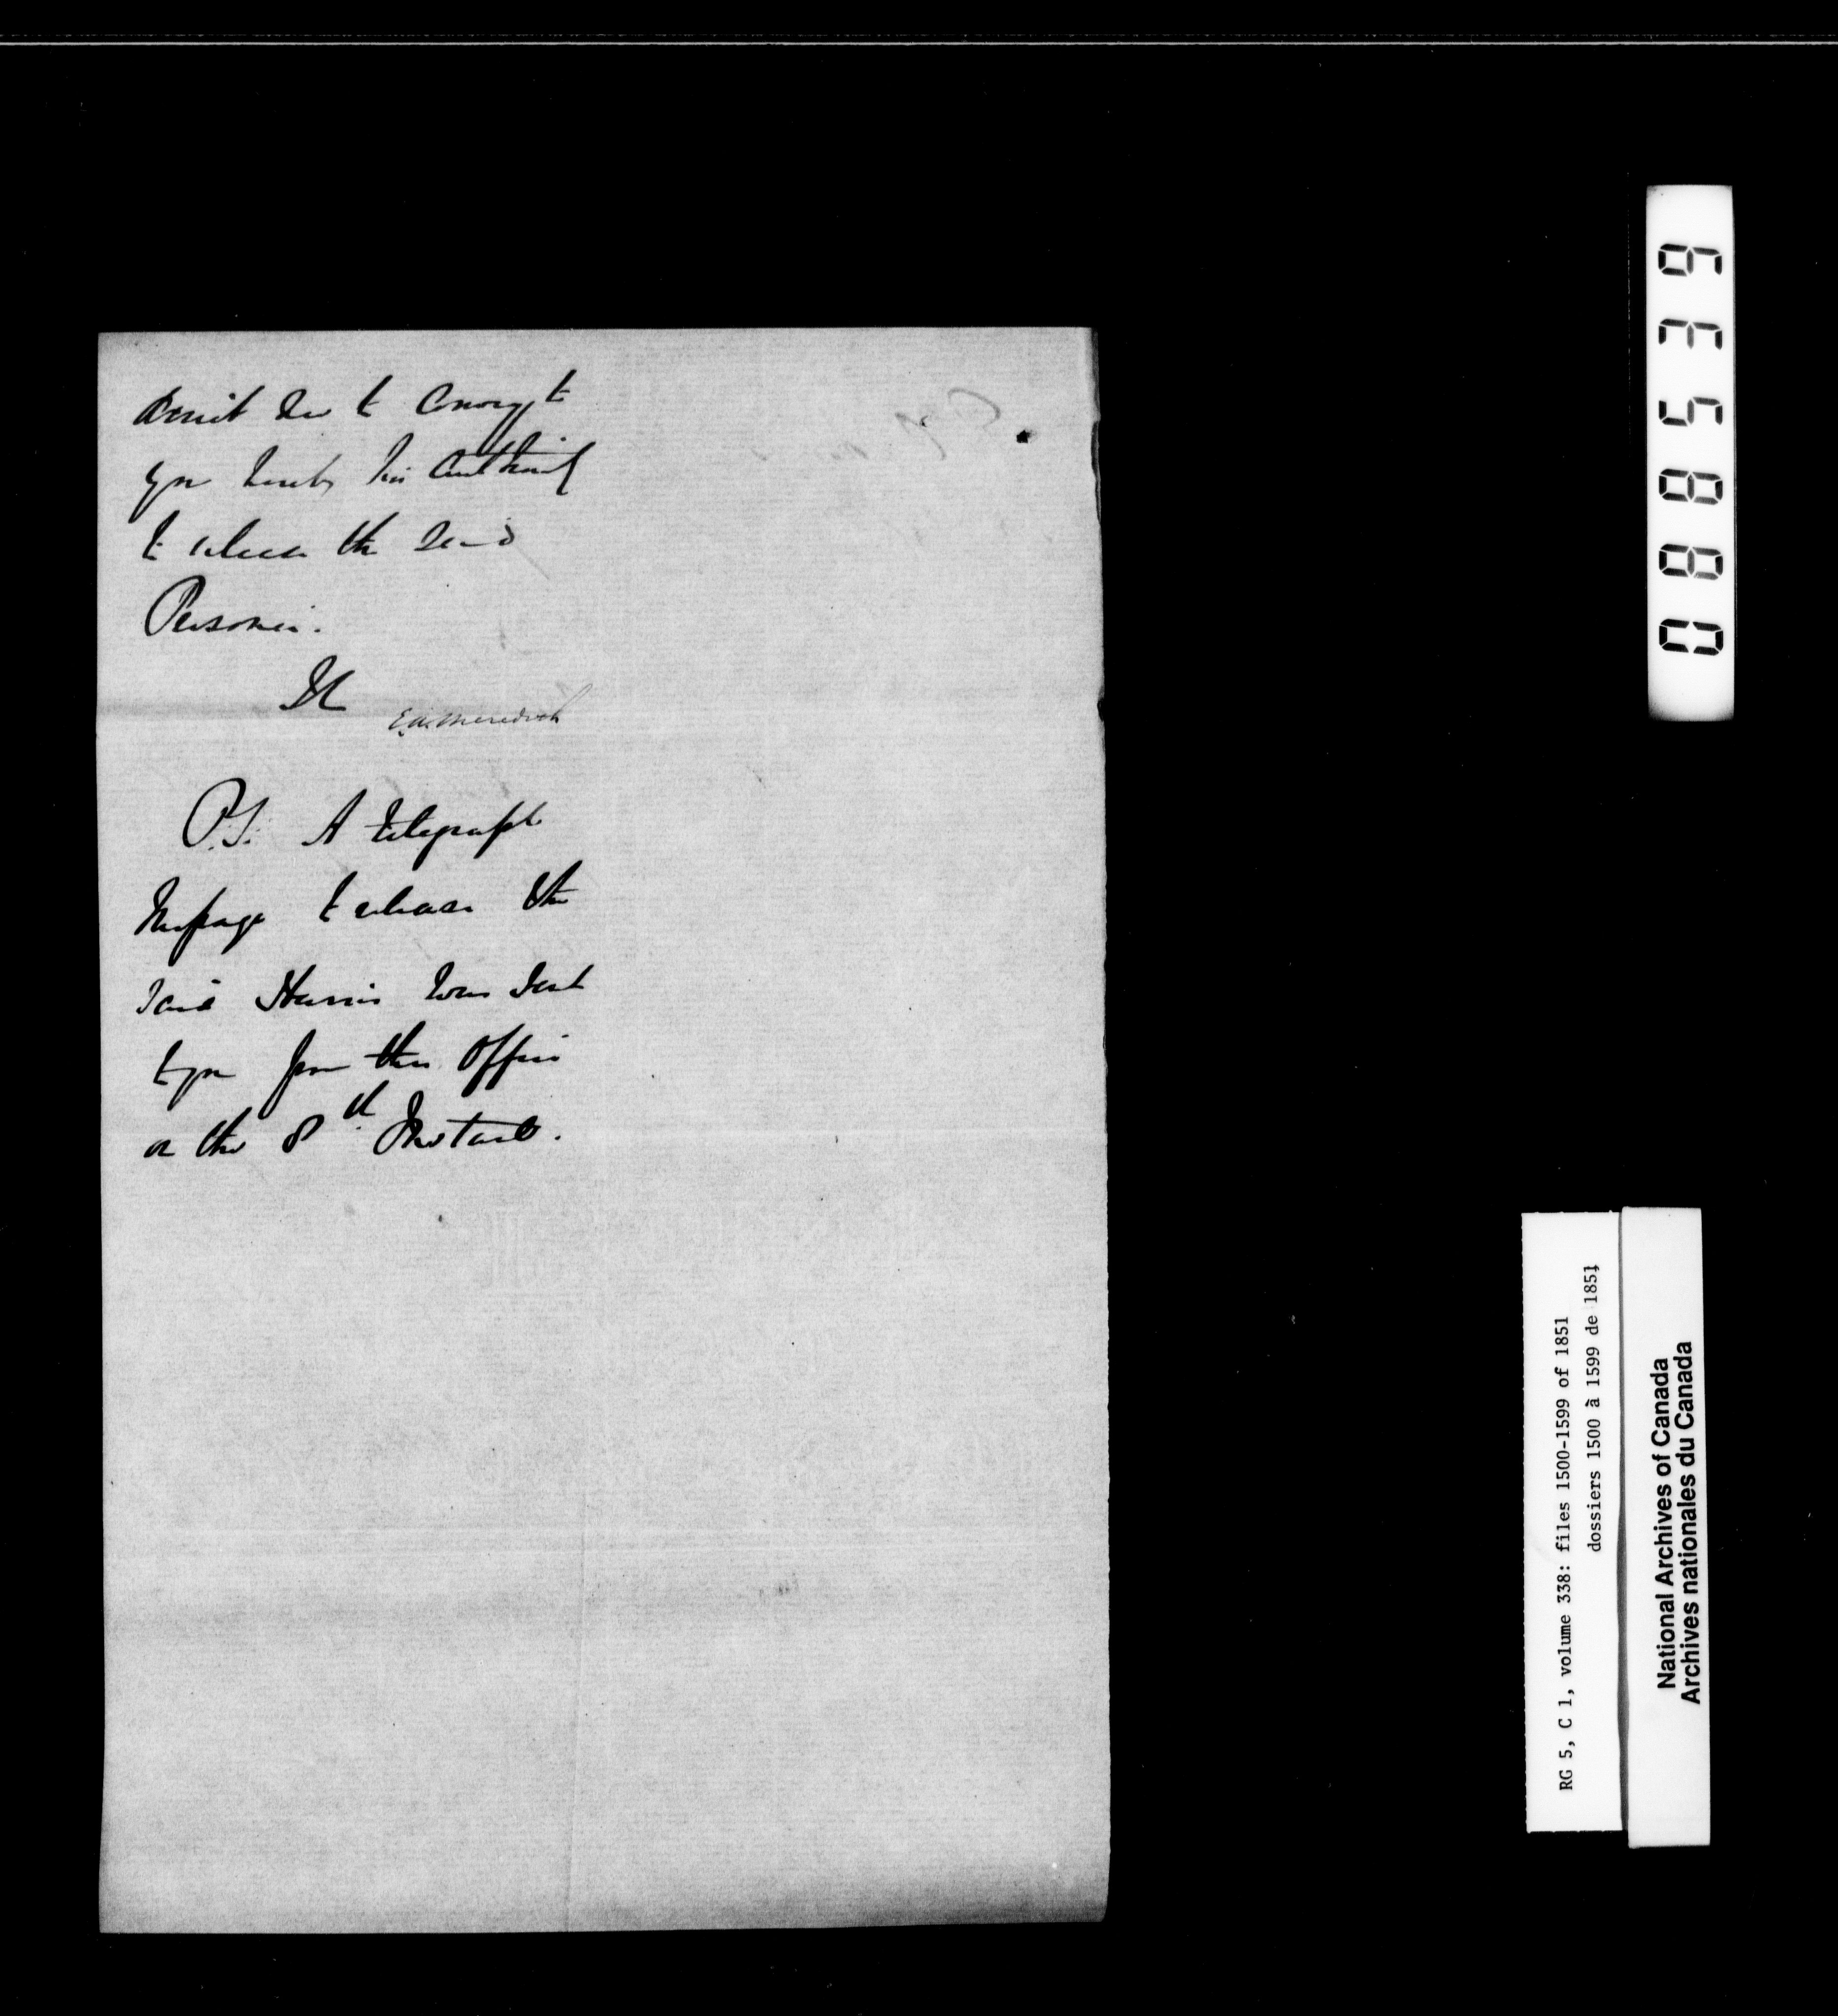 me to Convey to
you hereby his Authority
to release the said
Prisoner.
E.A. Meredith
P.S. A telegraph
Message to release the
said Harris was sent
to you from this Office
on the 8th Instant.
088539
RG 5, C 1, volume 338: files 1500-1599 of 1851
dossiers 1500 à 1599 de 1851
National Archives of Canada
Archives nationales du Canada